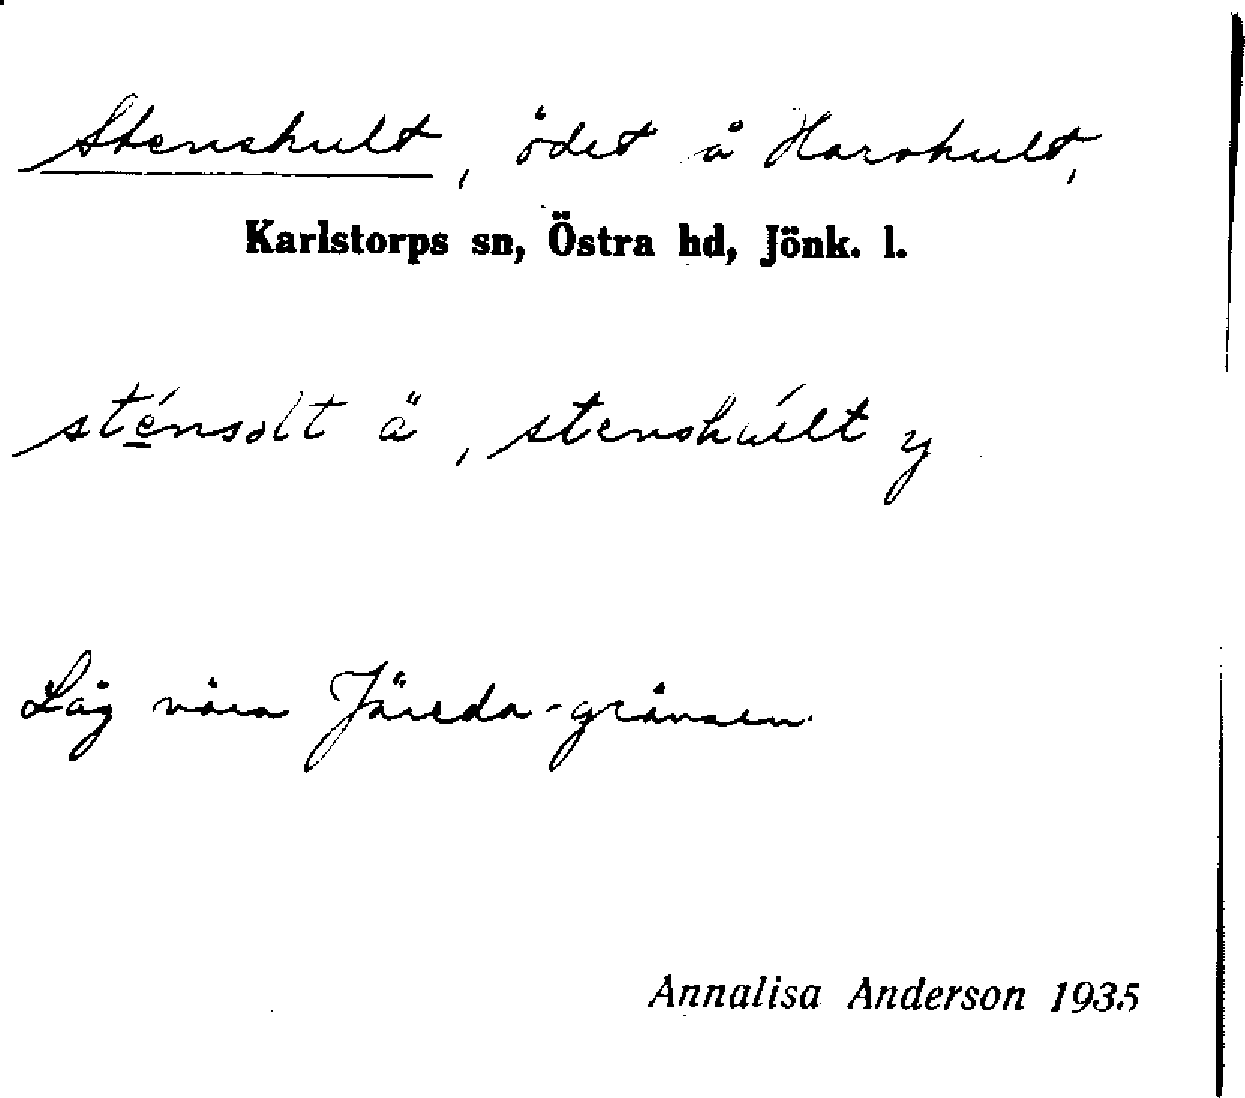 Stenshult, ödet å Harshult,
Karlstorps sn, Östra hd, Jönk. l.
sténsolt ä, stenshúlt y
Låg nära Järeda-gränsen.
Annalisa Anderson 1935